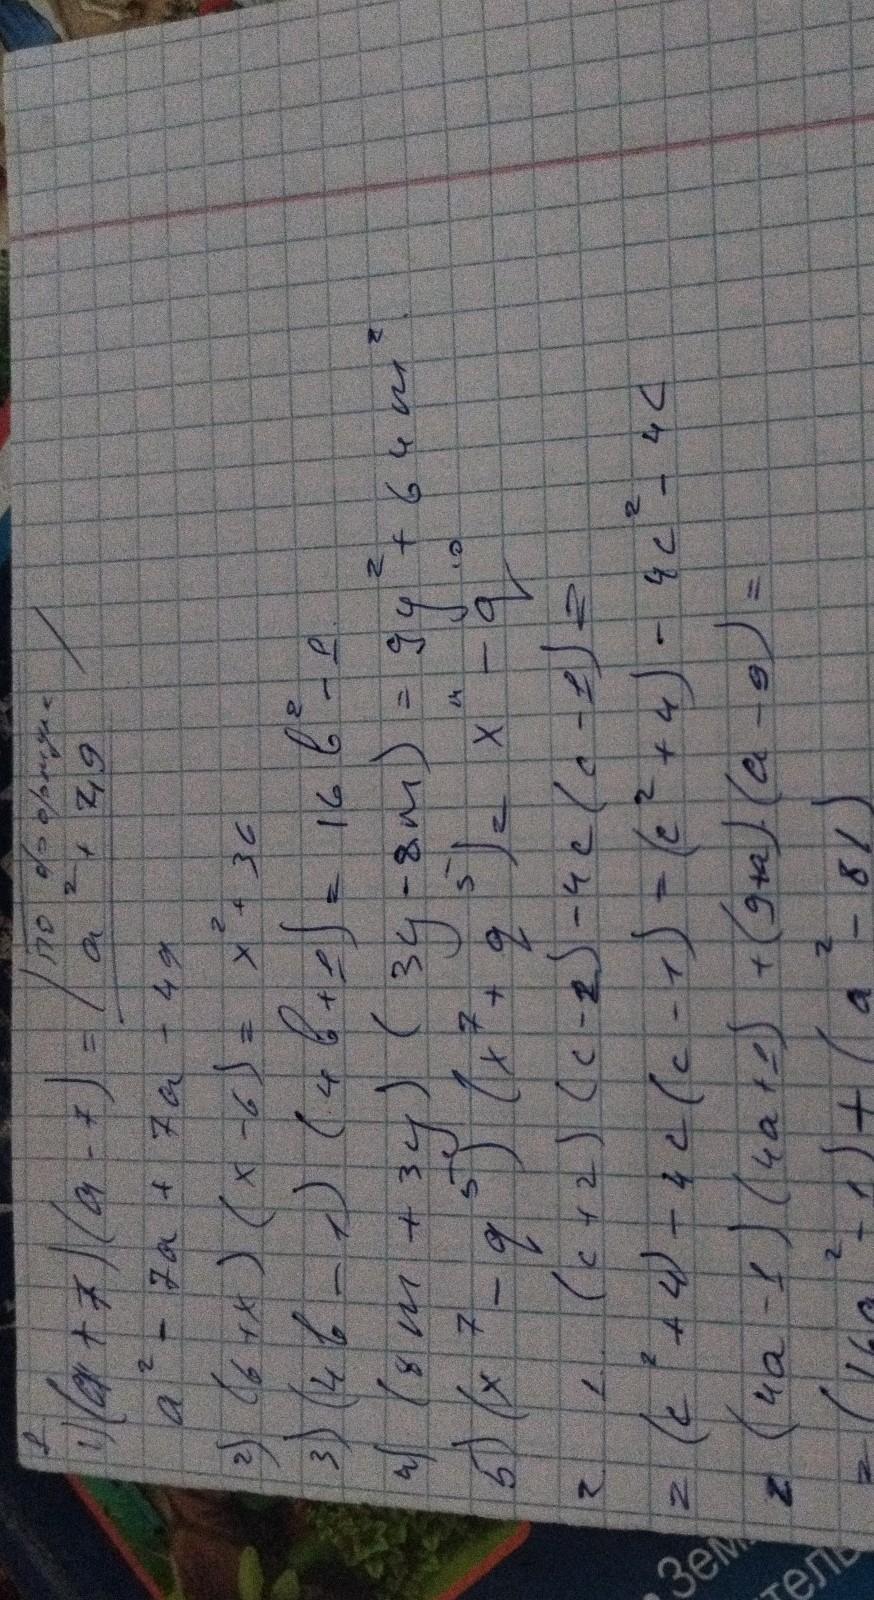 1
1) (a + 7)(a - 7) = /по формуле/
a² + 49
a² - 7a + 7a - 49
2) (6 + x)(x - 6) = x² + 36
3) (4b - 1)(4b + 1) = 16b² - 1
4) (8m + 3y)(3y - 8m) = 9y² + 64m².
5) (x⁷ - q⁵)(x⁷ + q⁵) = x⁴ - q¹⁰
2 1. (c + 2)(c - 2) - 4c(c - 1) =
= (c² + 4) - 4c(c - 1) = (c² + 4) - 4c² - 4c
2 (4a - 1)(4a + 1) + (9 + a)(a - 9) =
= (16a² - 1) + (a² - 81)
Зем
тель